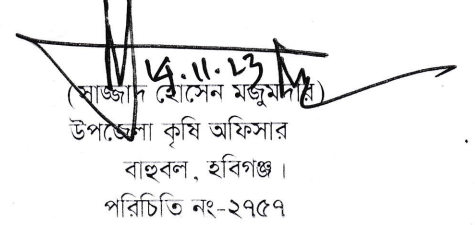 ১৫.11.23
(সাজ্জাদ হোসেন মজুমদার)
উপজেলা কৃষি অফিসার
বাহুবল, হবিগঞ্জ।
পরিচিতি নং-২৭৫৭